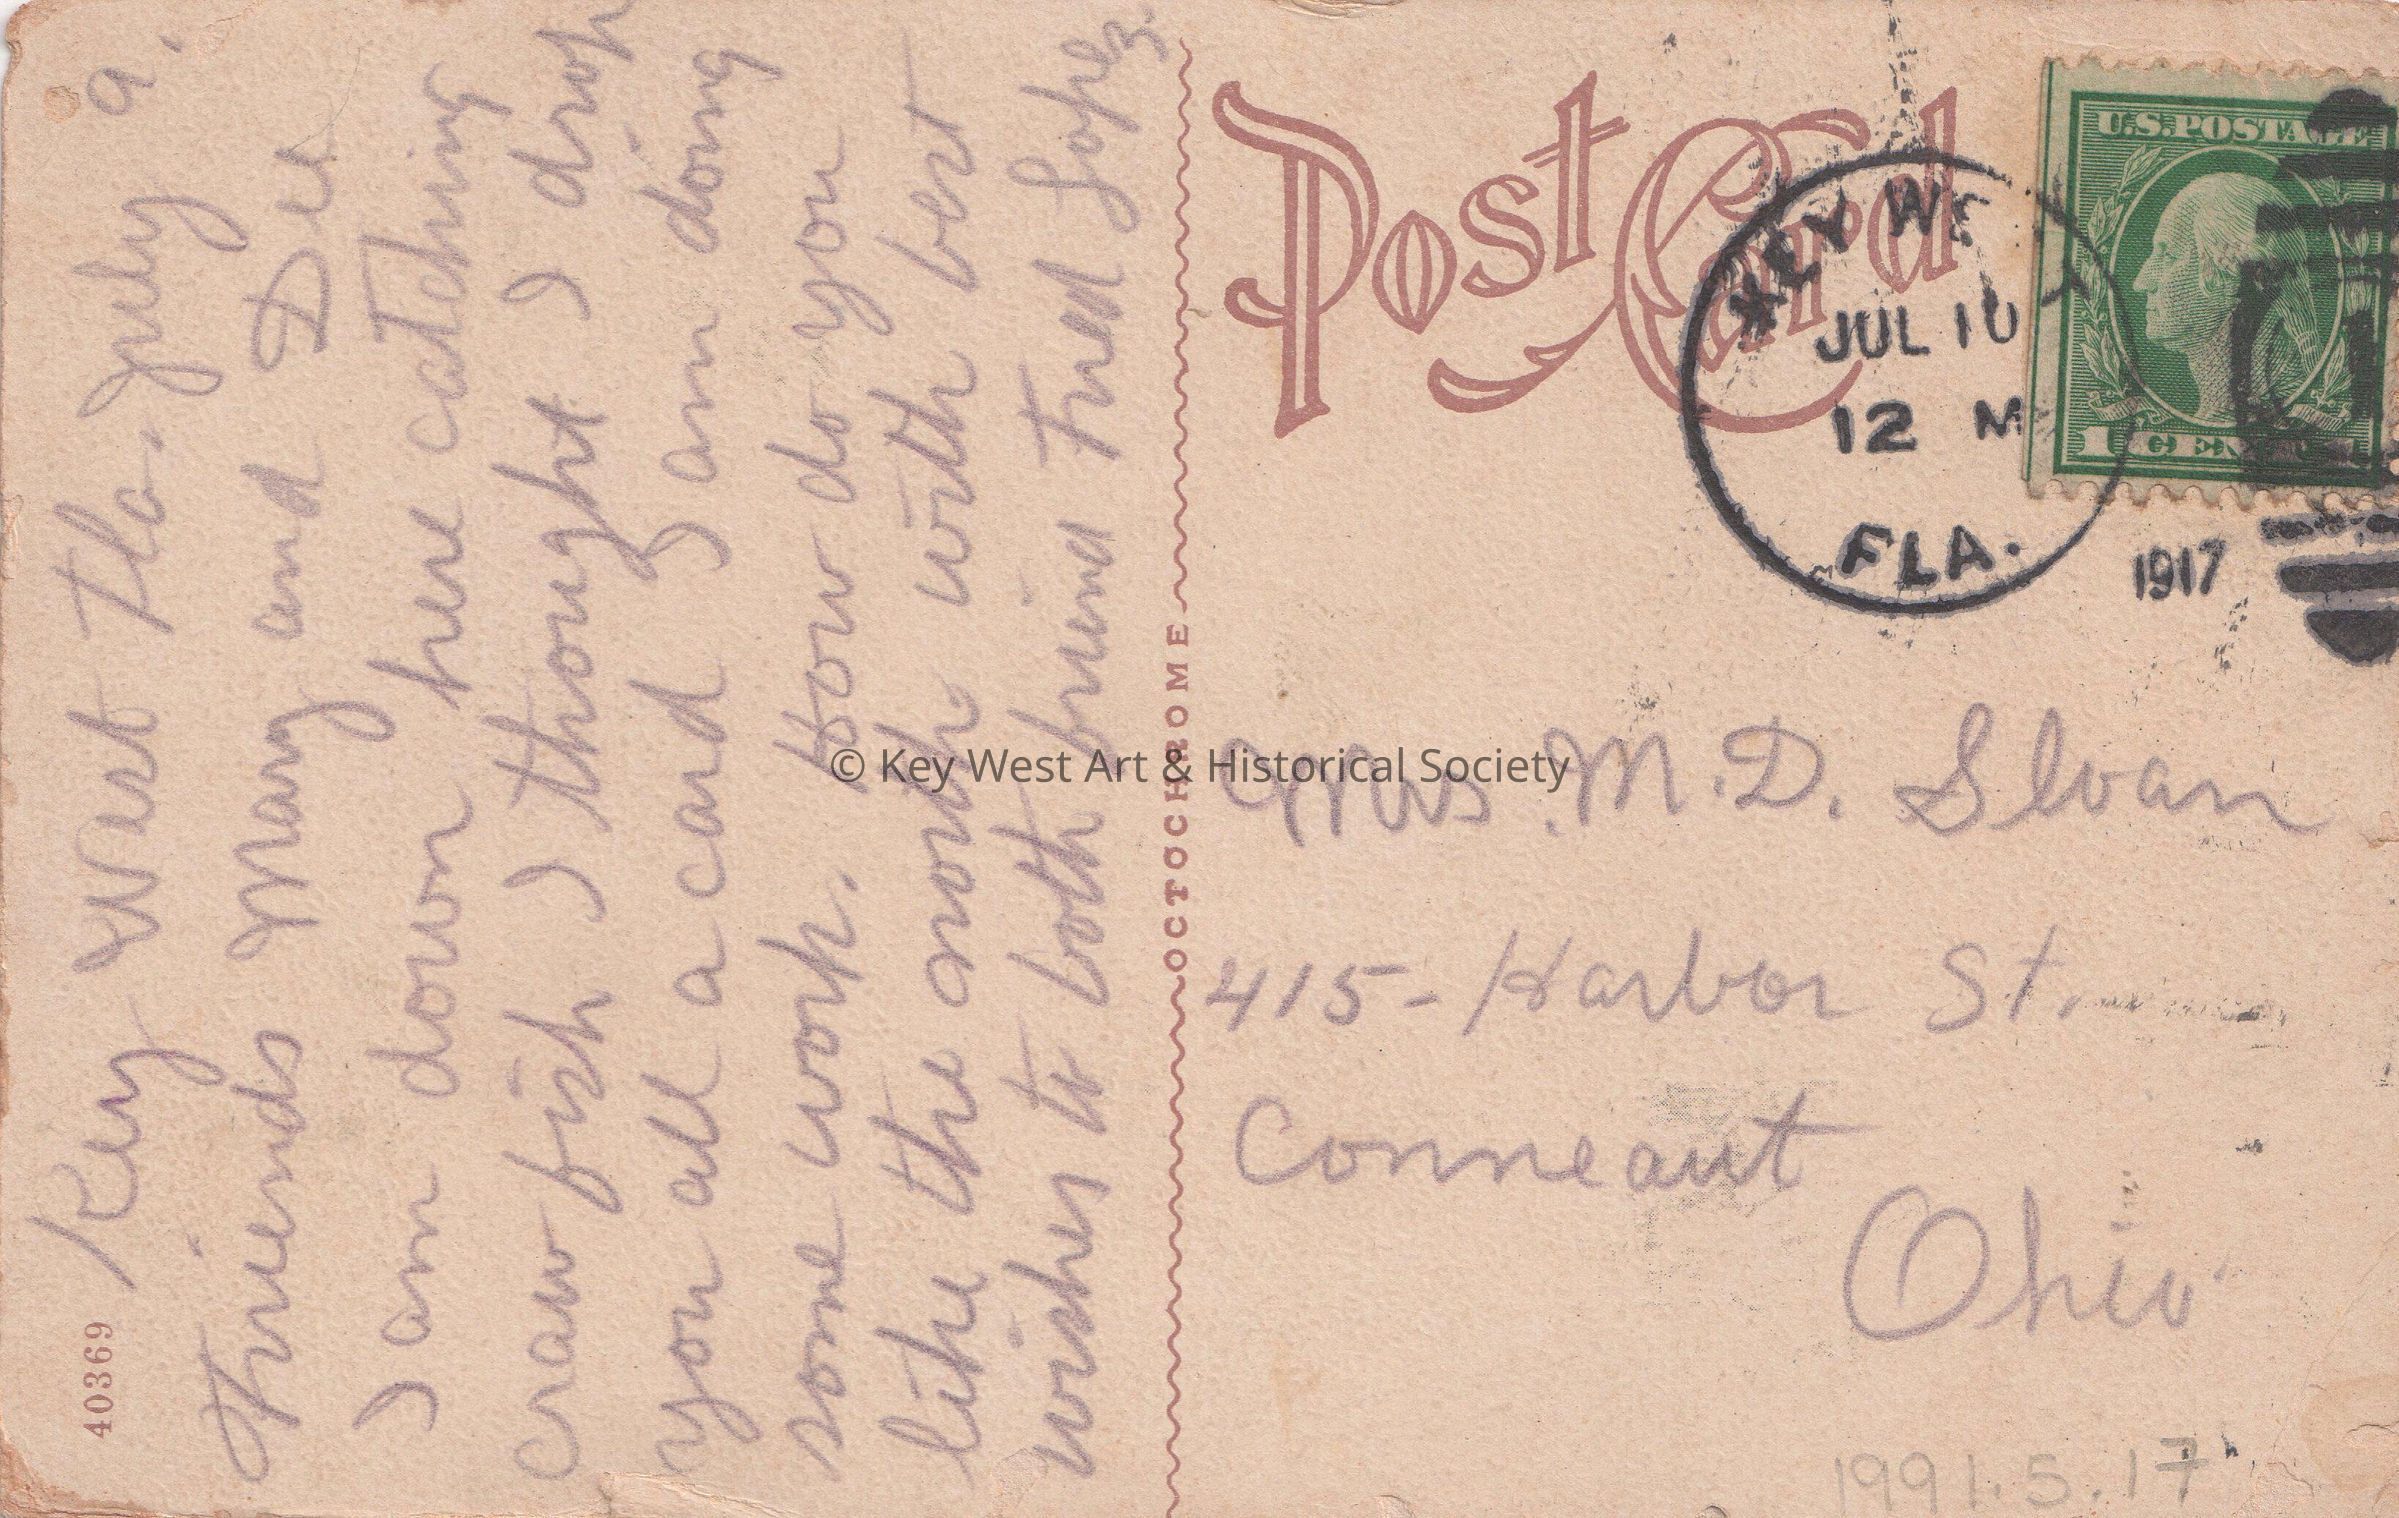 Key West Fla. July 9.
Friends Mary and Dee
I am down here catching
craw fish I thought I drop
you all a card I am doing
some work. How do you
like the north with best
wishes to both friend Fred Lopez.
40369
OCTOCHROME
Post Card
KEY WEST
JUL 10
12 M
FLA.
1917
U.S. POSTAGE
1 CENT 1
Mrs. M. D. Sloan
415 - Harbor St.
Conneaut
Ohio
1991.5.17
© Key West Art & Historical Society